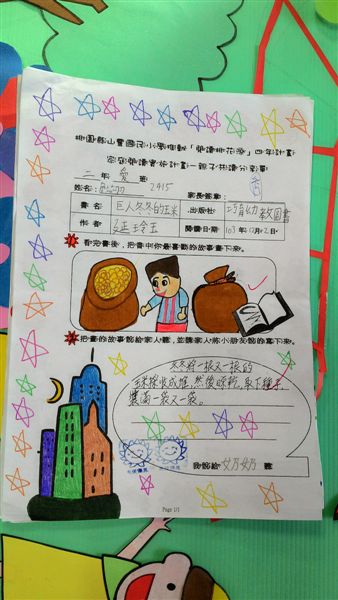 桃園縣山豐國民小學推動「悅讀桃花源」四年計劃
家庭悅讀實施計劃－親子共讀分享單
二年 愛 班
姓名： 2415 家長簽章：
書名 巨人冬冬的玉米 出版社： 巧育幼教圖書
作者 汪玲玉 閱讀日期 103年12月2日.
1 看完書後，把書中你最喜歡的故事畫下來。
2 把書的故事說給家人聽，並請家人將小朋友說的寫下來。
冬冬將一根又一根的
玉米採收成堆，然後晒乾，取下種子，
裝滿一袋又一袋。
我說給 奶奶 聽
Page 1/1